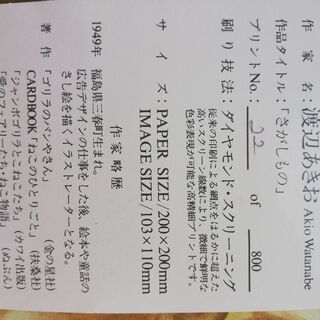 作家名：渡辺あきお Akio Watanabe
作品タイトル：「さがしもの」
プリントNo.： 22 of 800
刷り技法：ダイヤモンド・スクリーニング
従来の印刷による網点をはるかに超えた
高いスクリーン線数により、微細で鮮明な
色彩表現が可能な高精細プリントです。
サイズ：PAPER SIZE/200×200mm
IMAGE SIZE/103×110mm
作家略歴
1949年 福島県三春町生まれ。
広告デザインの仕事をした後、絵本や童話の
さし絵を描くイラストレーターとなる。
著作 「ゴリラのパンやさん」 （金の星社）
CARDBOOK「ねこのひとりごと」（扶桑社）
「ジャンボゴリラとこねこたち」（カワイ出版）
「愛のフェアリーたち・ねこ物語」（ぬぷん）